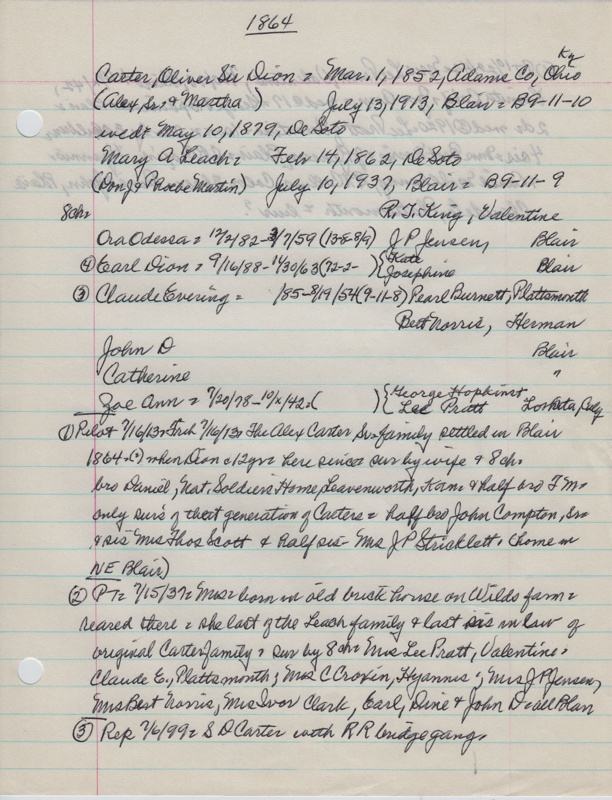 1864
Ky
Carter, Oliver Sir Dion = Mar. 1, 1852, Adams Co, Ohio
(Alex Sr. & Martha ) July 13, 1913, Blair = B9-11-10
wed: May 10, 1879, De Soto
Mary A Leach = Feb 14, 1862, De Soto
(Dm J & Phoebe Martin) July 10, 1937, Blair = B9-11-9
8chs R. T. King, Valentine
Ora Odessa = 12/2/82-3/7/59 (13-8-8/9) J P Jensen, Blair
④ Earl Dion = 9/16/88-11/30/63 (72-2- ) {Kate Josephine Blair
③ Claude Evering = /85-8/19/54 (9-11-8) Pearl Burnett, Plattsmouth
Bert Norris, Herman
John D Blair
Catherine "
Zoe Ann = 7/20/78-10/x/42. ( ) {George Hopkins? Lee Pratt
① Pilot 7/16/13 = 7/16/13 = The Alex Carter Sr. family settled in Blair
1864. (?) when Dion = 12yrs = here since = sur by wife & 8 chs
bro Daniel, Nat. Soldiers Home, Leavenworth, Kans = & half bro T M =
only sur's of that generation of Carters = half bro John Compton,
& sis Mrs Thos Scott & half sis- Mrs J P Stricklett. (home in
NE Blair)
② PT = 7/15/37 = Mrs = born in old brick house on Wilds farm =
reared there = she last of the Leach family & last sis in law of
original Carter family = sur by 8 chs = Mrs Lee Pratt, Valentine =
Claude E, Plattsmouth; Mrs C Cronin, Hyannis; Mrs J P Jensen,
Mrs Bert Norris, Mrs Ivor Clark, Earl, Dine & John D = all Blair
③ Rep 7/6/99 = S D Carter with R R bridge gang.